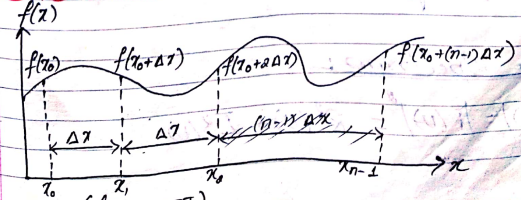 f(x)
f(x₀) f(x₀+Δx) f(x₀+2Δx) f(x₀+(n-1)Δx)
Δx Δx
x₀ x₁ xₙ₋₁ x